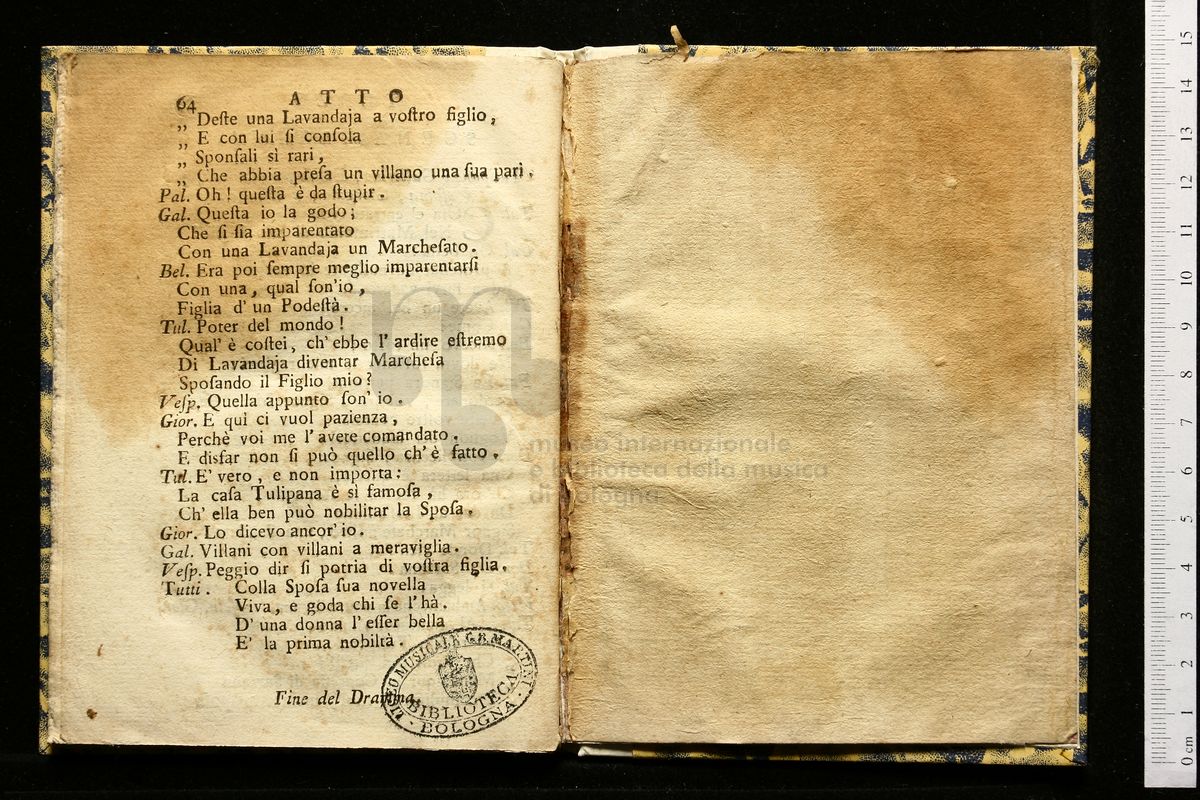 64 ATTO
„ Deſte una Lavandaja a voſtro figlio,
„ E con lui ſi conſola
„ Sponſali sì rari,
„ Che abbia preſa un villano una ſua pari.
Pal. Oh! queſta è da ſtupir.
Gal. Queſta io la godo;
Che ſi ſia imparentato
Con una Lavandaja un Marcheſato.
Bel. Era poi ſempre meglio imparentarſi
Con una, qual ſon'io,
Figlia d'un Podeſtà.
Tul. Poter del mondo!
Qual'è coſtei, ch'ebbe l'ardire eſtremo
Di Lavandaja diventar Marcheſa
Spoſando il Figlio mio?
Veſp. Quella appunto ſon'io.
Gior. E quì ci vuol pazienza,
Perchè voi me l'avete comandato.
E disfar non ſi può quello ch'è fatto.
Tul. E' vero, e non importa:
La caſa Tulipana è sì famoſa,
Ch'ella ben può nobilitar la Spoſa.
Gior. Lo dicevo ancor'io.
Gal. Villani con villani a meraviglia.
Veſp. Peggio dir ſi potria di voſtra figlia.
Tutti. Colla Spoſa ſua novella
Viva, e goda chi ſe l'hà.
D'una donna l'eſſer bella
E' la prima nobiltà.
Fine del Dramma.
LICEO MUSICALE G.B. MARTINI
BIBLIOTECA
BOLOGNA
museo internazionale
e biblioteca della musica
di bologna
0 cm 1 2 3 4 5 6 7 8 9 10 11 12 13 14 15